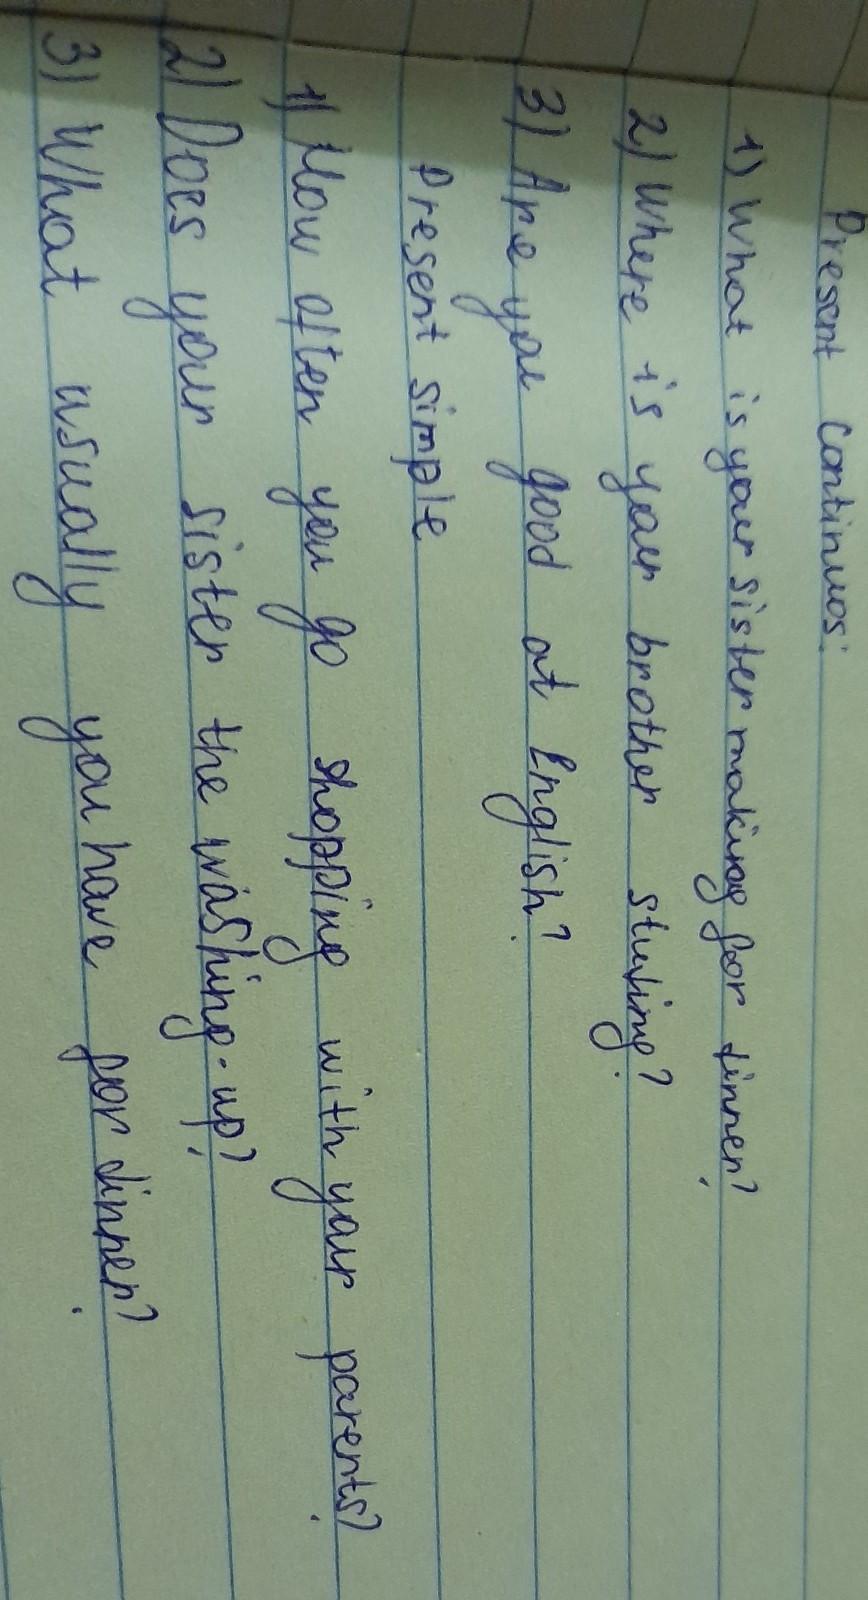 Present Continuos:
1) What is your sister making for dinner?
2) Where is your brother studing?
3) Are you good at English?
Present simple
1) How often you go shopping with your parents?
2) Does your sister the washing-up?
3) What usually you have for dinner?